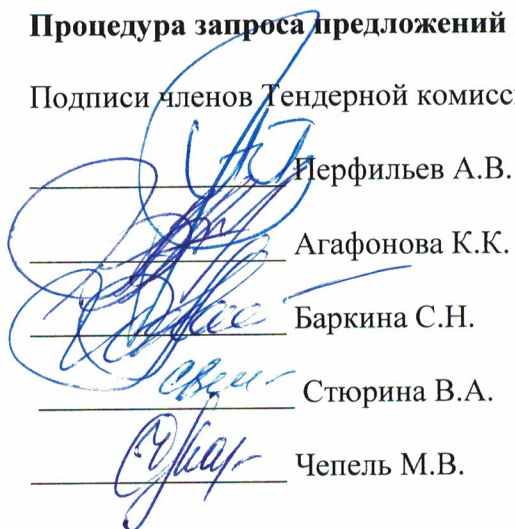 Процедура запроса предложений
Подписи членов Тендерной комисс
Перфильев А.В.
Агафонова К.К.
Баркина С.Н.
Стюрина В.А.
Чепель М.В.